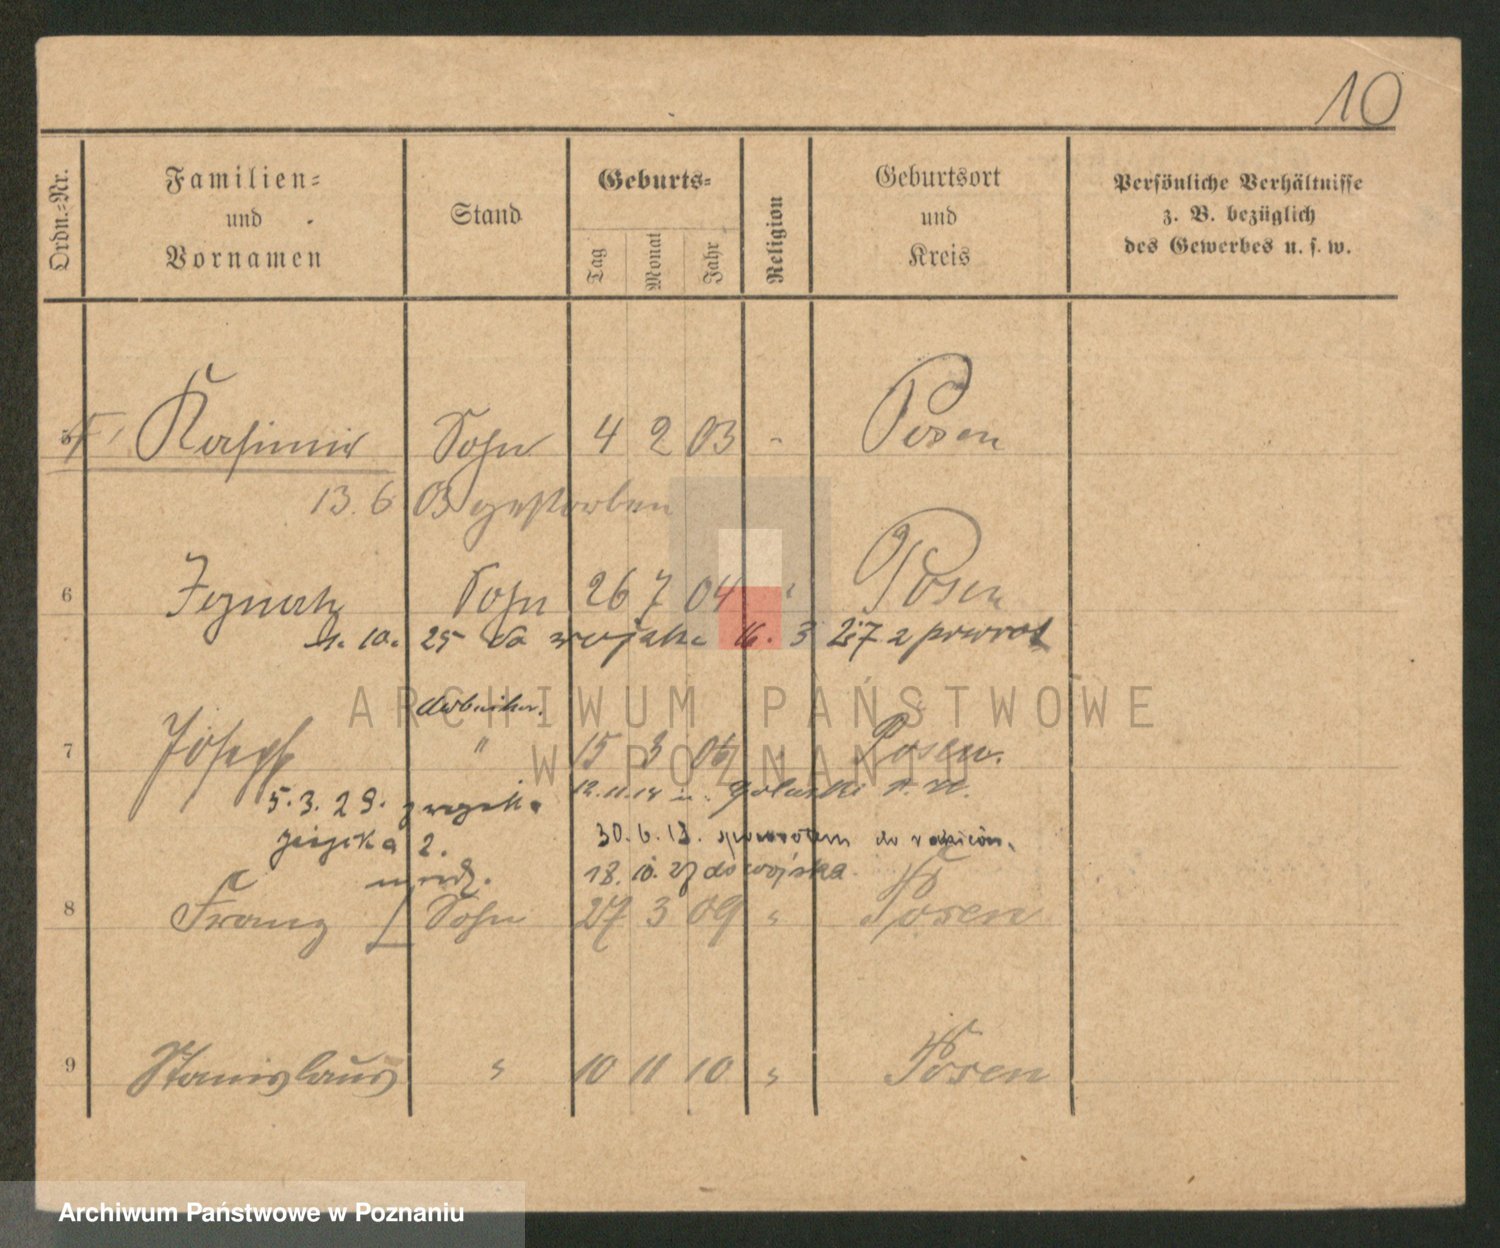 10
Ordn.-Nr.
Familien-
und
Vornamen
Stand
Geburts-
Tag
Monat
Jahr
Religion
Geburtsort
und
Kreis
Persönliche Verhältnisse
z. B. bezüglich
des Gewerbes u. s. w.
5 Kasimir Sohn 4 2 03 " Posen
13.6 03 gestorben
6 Ignatz Sohn 26 7 04 " Posen
10. 25 do wojska 16. 3 27 z powrot
7 Joseph " 15 3 Posen.
5. 3. 29.
12.11.18
2. 30. 6. 19. spowrotem do
18. 10. 27 do wojska
8 Franz Sohn 27 3 09 " Posen
9 Stanislaus " 10 11 10 " Posen
ARCHIWUM PAŃSTWOWE
W POZNANIU
Archiwum Państwowe w Poznaniu